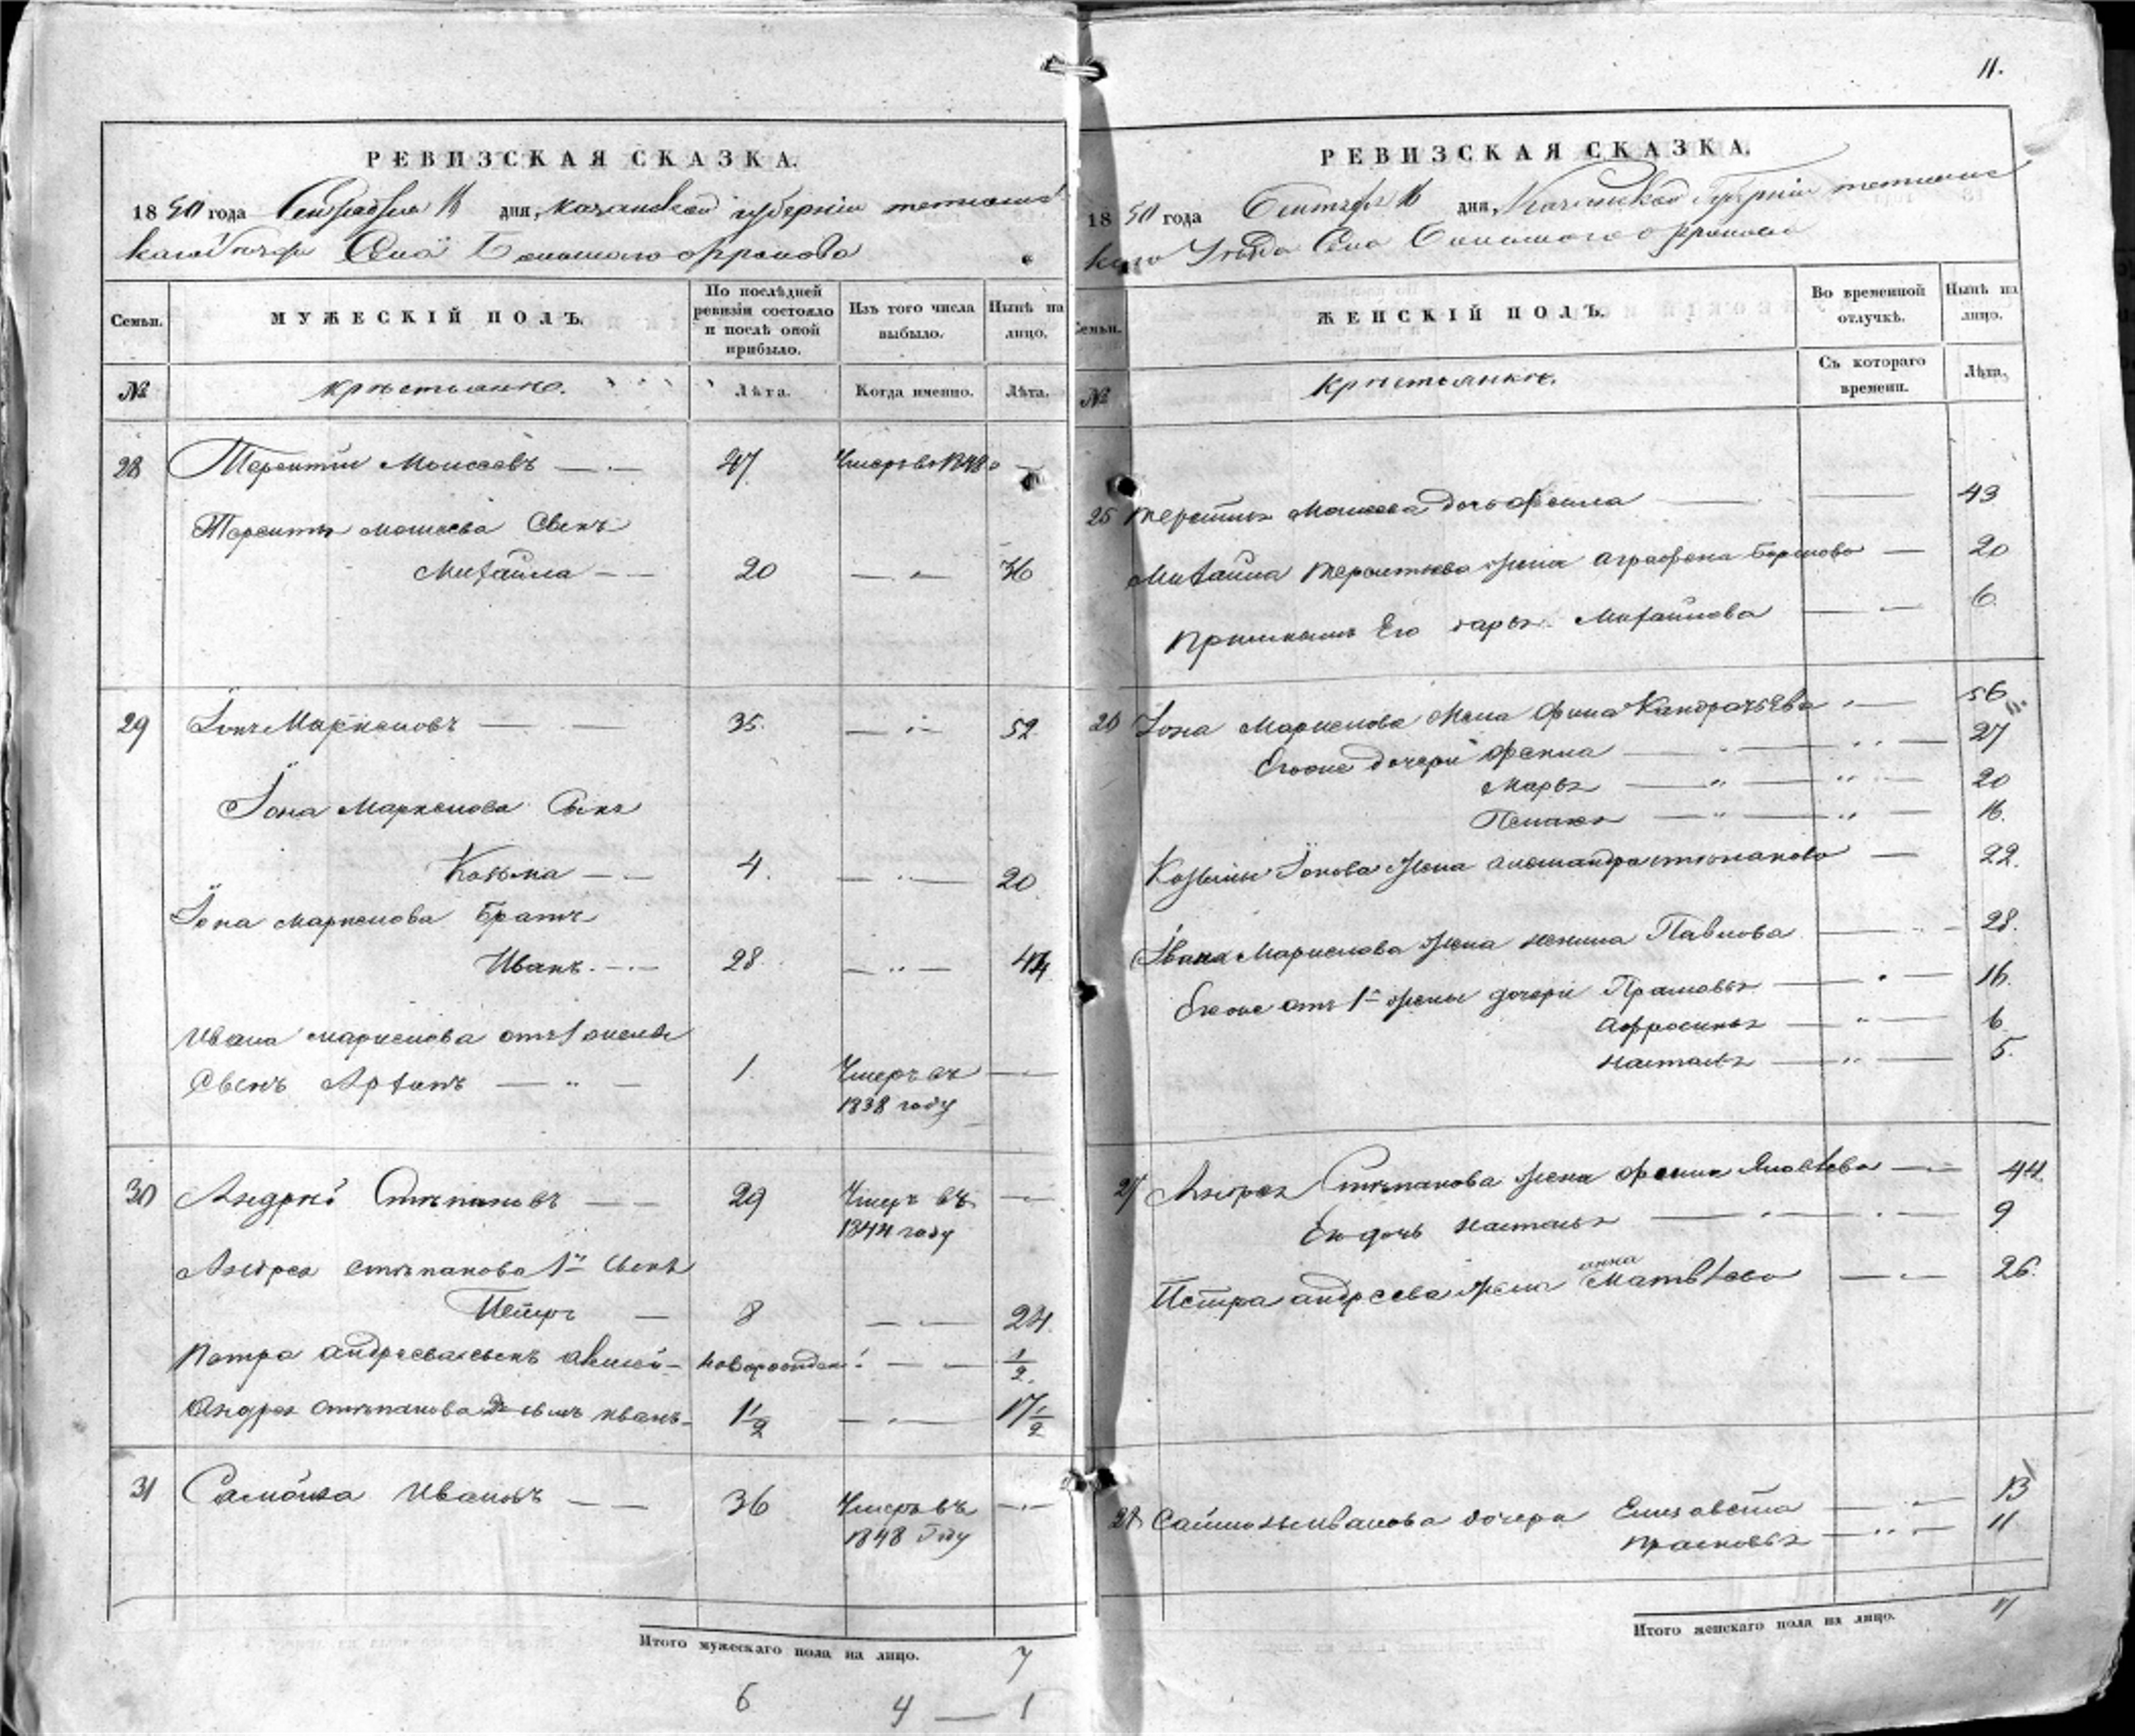 11.
РЕВИЗСКАЯ СКАЗКА.
1850 года Сентября 16 дня, Казанской губернии тетюшс
каго Села Большого Фролова
Семьи. МУЖЕСКІЙ ПОЛЪ. По послѣдней ревизіи состояло и послѣ оной прибыло. Изъ того числа выбыло. Нынѣ на лицо.
№ крестьяне. Лѣта. Когда именно. Лѣта.
28 Терентій Моисеевъ 47 Умеръ в 1848 —
Терентья моисеева Сынъ
Михайла 20 — 36
29 Іона Маркеловъ 35. — 52
Іона Маркелова Сынъ
Козьма 4. — 20
Іона маркелова братъ
Иванъ. 28. — 44
Ивана маркелова отъ 1 жены
Сынъ Архипъ 1. Умеръ въ —
1838 году
30 Андрей Степановъ 29 Умеръ въ —
1844 году
Андрея степанова 1й сынъ
Петръ 8 — 24.
Петра андреева сынъ алексей новорожден — 1/2.
Андрея степанова 2й сынъ иванъ 1 1/2 — 17 1/2
31 Самойла Ивановъ 36 Умеръ въ —
1848 Году
Итого мужескаго пола на лицо. 7
6 4 — 1
РЕВИЗСКАЯ СКАЗКА.
1850 года Сентября 16 дня, Казанской Губерніи тетюшс
каго Уѣзда Села Большого Фролова
Семьи. ЖЕНСКІЙ ПОЛЪ. Во временной отлучкѣ. Нынѣ на лицо.
№ крестьянки. Съ котораго времени. Лѣта.
25 Терентья Моисеева дочь Фекла 43
Михайла терентьева жена аграфена 20
Его дарья Михайлова 6.
26 Іона Маркелова жена Кандратьева 56
Егоже дочери Фекла 27
Марья 20
Пелагея 16.
Козьмы Іонова жена александра степанова 22.
Ивана Маркелова жена Павлова 28.
Егоже отъ 1й жены дочери Прасковья 16.
Афросинья 6
настасья 5.
27 Андрея Степанова жена Яковлева 44
Его дочь настасья 9
анна
Петра андреева жена Матвѣева 26.
28 Самойлы иванова дочери Елизавета 13
прасковья 11
Итого женскаго пола на лицо.